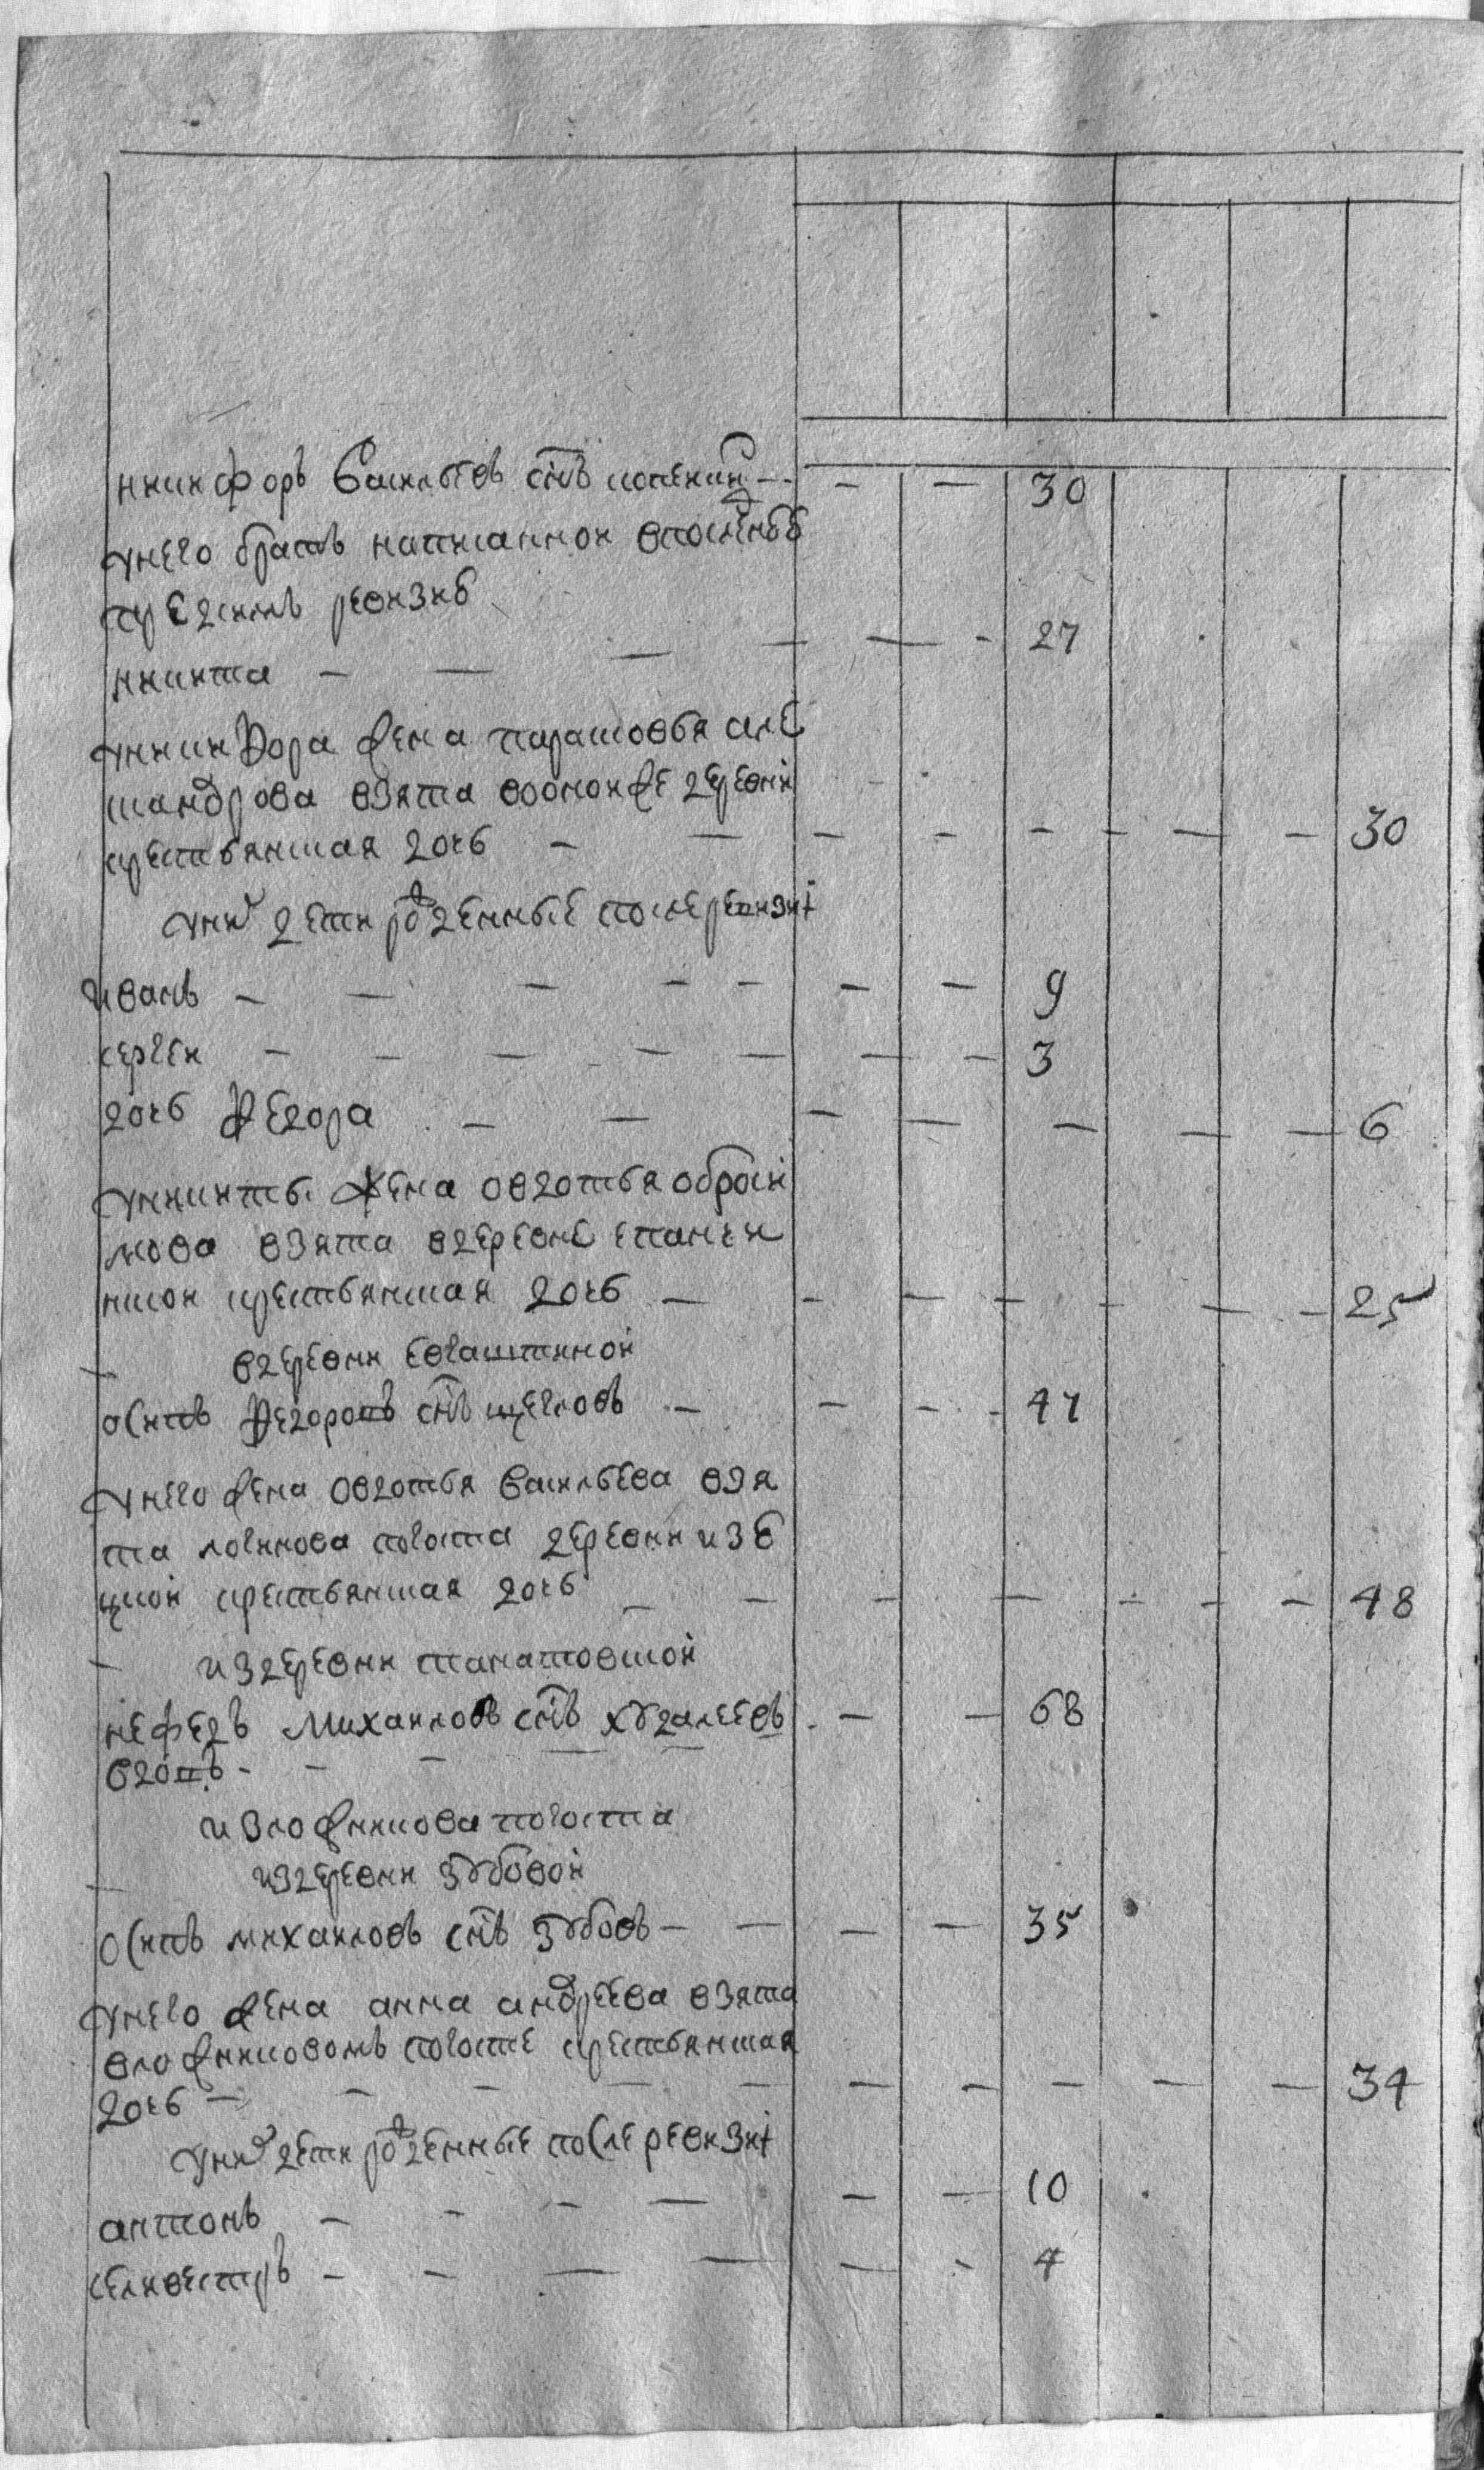 никифоръ василъевъ снъ копенин - - - - 30
унего братъ написанной впоследнею
пред симъ ревизию
никита - - - - - - 27
уникифора жена парасковья алек
сандрова взята втой же деревни
крестьянская дочь - - - - - - - - 30
уних дети рожденные после ревизи
иванъ - - - - - - - 9
сергей - - - - - - - 3
дочь федора - - - - - - - 6
уникиты жена овдотья обраси
мова взята вдеревне
ской крестьянская дочь - - - - - - - 25
вдеревни
осипъ федоровъ снъ щегловъ - - - - 47
унего жена овдотья васильева взя
та логинова погоста деревни
крестьянская дочь - - - - - - - 48
- издеревни
нефедъ михаиловъ снъ худалеевъ - - 68
вдовъ - - - -
из погоста
издеревни зубовой
осипъ михаиловъ снъ зубовъ - - - - 35
унего жена анна андреева взята
погосте крестьянская
дочь - - - - - - - - - - 34
уних дети рожденные после ревизи
антонъ - - - - - - 10
селивестръ - - - - - - 4